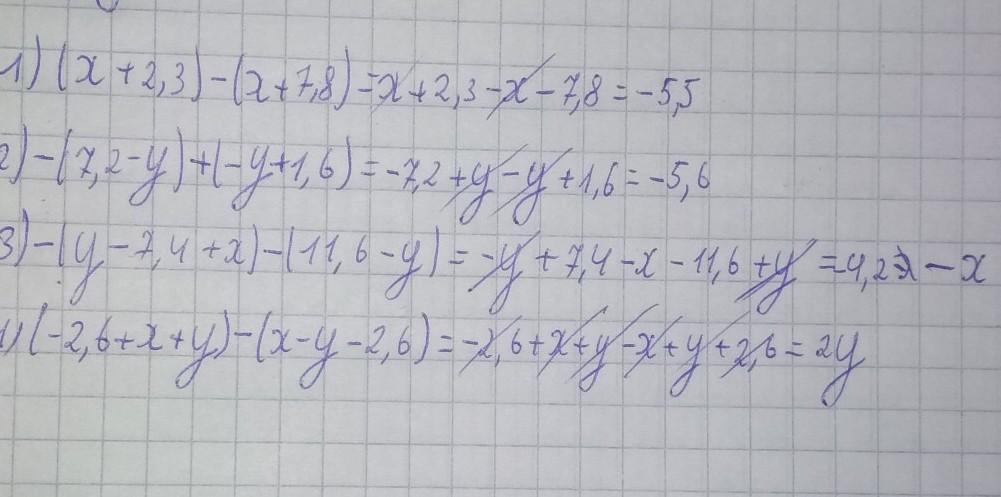 1) (x + 2,3) - (x + 7,8) = x + 2,3 - x - 7,8 = -5,5
2) - (7,2 - y) + (-y + 1,6) = -7,2 + y - y + 1,6 = -5,6
3) - (y - 7,4 + x) - (11,6 - y) = -y + 7,4 - x - 11,6 + y = -4,2 - x
4) (-2,6 + x + y) - (x - y - 2,6) = -2,6 + x + y - x + y + 2,6 = 2y